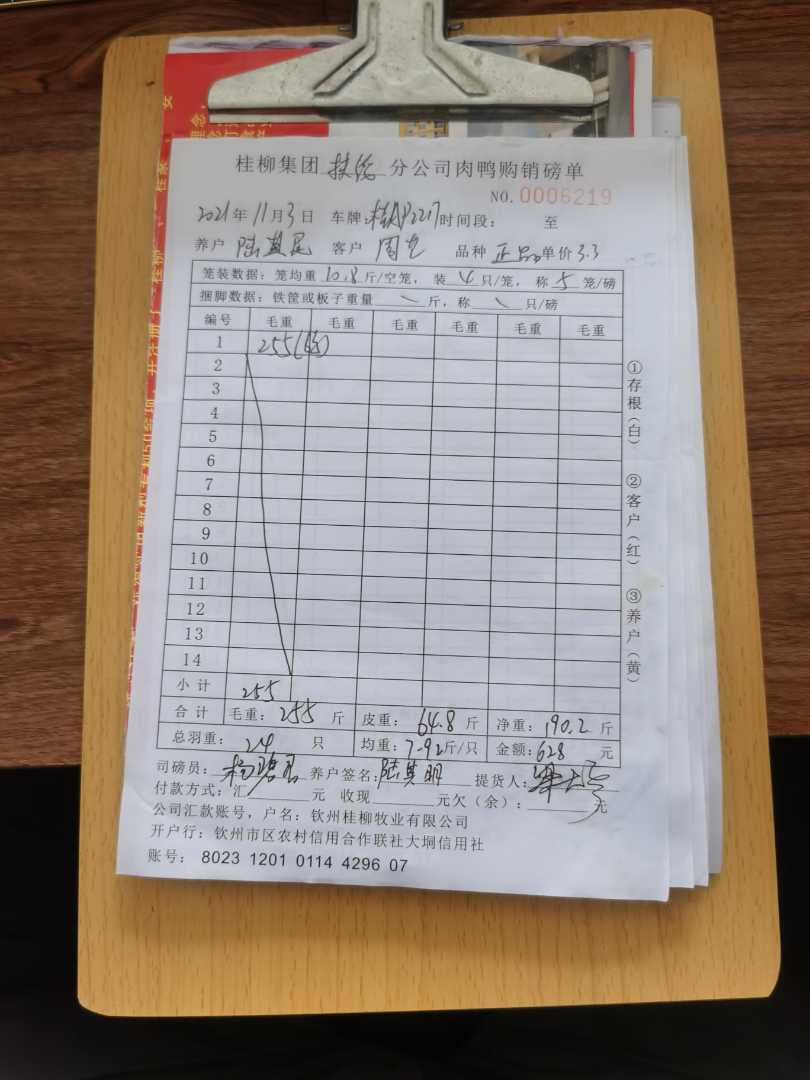 桂柳集团 扶绥 分公司肉鸭购销磅单
NO. 0006219
2021年11月3日 车牌: 2217 时间段: 至
养户 陆其 客户 周 品种 正品 单价 3.3
笼装数据: 笼均重 10.8 斤/空笼, 装 4 只/笼, 称 5 笼/磅
捆脚数据: 铁筐或板子重量 \ 斤, 称 \ 只/磅
编号 毛重 毛重 毛重 毛重 毛重 毛重
1 255
2
3
4
5
6
7
8
9
10
11
12
13
14
小计 255
合计 毛重: 255 斤 皮重: 64.8 斤 净重: 190.2 斤
总羽重: 24 只 均重: 7.92 斤/只 金额: 628 元
司磅员: 杨 养户签名: 陆其明 提货人:
付款方式: 汇 元 收现 元欠(余): 元
公司汇款账号, 户名: 钦州桂柳牧业有限公司
开户行: 钦州市区农村信用合作联社大垌信用社
账号: 8023 1201 0114 4296 07
①存根(白) ②客户(红) ③养户(黄)